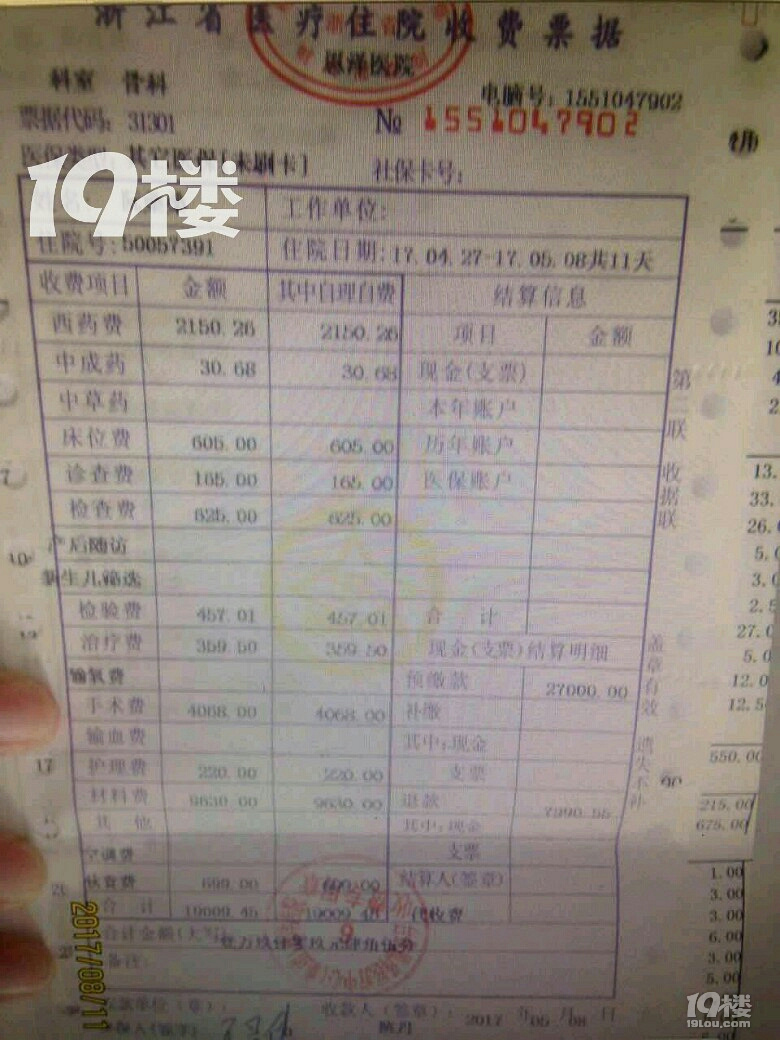 浙江省医疗住院收费票据
恩泽医院
科室 骨科
电脑号: 1551047902
票据代码: 31301
№ 1551047902
医保类别: 其它医保[未刷卡]
社保卡号:
19楼
工作单位:
住院号: 50057391 住院日期: 17.04.27-17.05.08共11天
收费项目 金额 其中自理自费 结算信息
西药费 2150.26 2150.26 项目 金额
中成药 30.68 30.68 现金(支票)
中草药 本年账户
床位费 605.00 605.00 历年账户
诊查费 165.00 165.00 医保账户
检查费 625.00 625.00
产后随访
新生儿筛选
检验费 457.01 457.01 合 计
治疗费 359.50 359.50 现金(支票)结算明细
输氧费 预缴款 27000.00
手术费 4068.00 4068.00 补缴
输血费 其中:现金
护理费 220.00 220.00 支票
材料费 9630.00 9630.00 退款 7990.55
其 他 其中:现金
空调费 支票
伙食费 699.00 699.00 结算人(签章)
合 计 19009.45 19009.45 代收费
合计金额(大写): 壹万玖仟零玖元肆角伍分
备注:
收款人(签章):
2017 年 05 月 08 日
第二联 收据联
盖章有效 遗失不补
2017/08/11
550.00
215.00
675.00
1.00
3.00
3.00
6.00
3.00
5.00
19楼
19lou.com